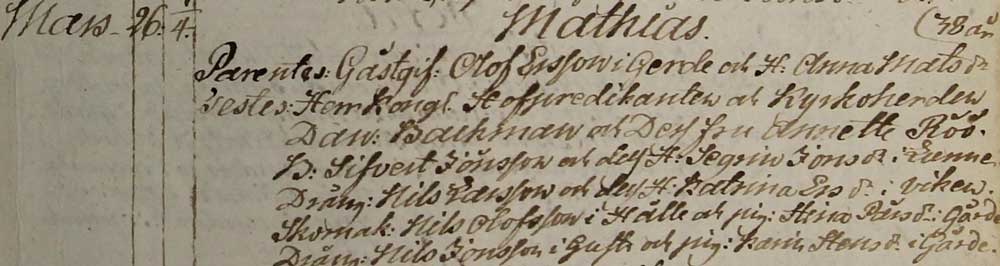 Mars 26. 1/4. Mathias. (38 år
Parentes: Gästgif: Olof Ersson i Gerde och H: Anna Mats dr
Testes: Herr Kongl. Hofpredikanten och Kyrkoherden
Dan: Backman och Dess fru Annette Röö.
B: Sifvert Jönsson och dess H: Segrin Jons dr i Lienne
Dräng: Nils Larsson och dess H: Katrina Ers dr i viken.
Skomak: Nils Olofsson i Hälle och pig: Stina Pärs dr i Gärde
Dräng: Nils Jonsson i Gufta och pig: Karin Stens dr i Gärde